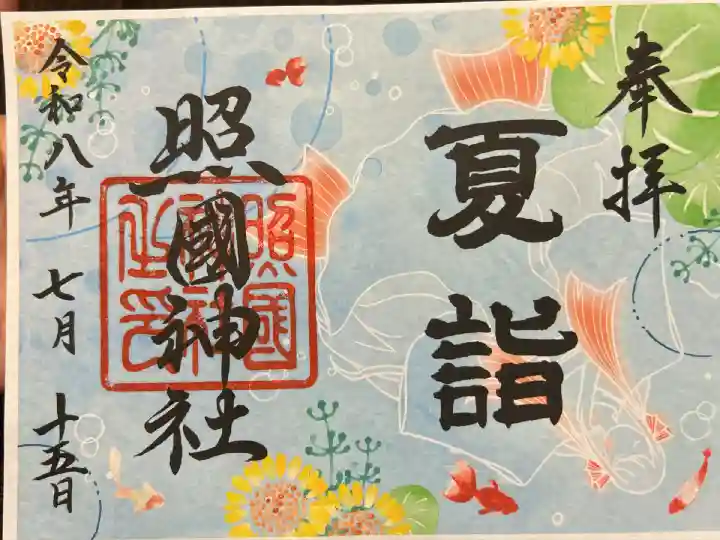 奉拝
夏詣
照國神社
照國神社之印
令和八年 七月 十五日